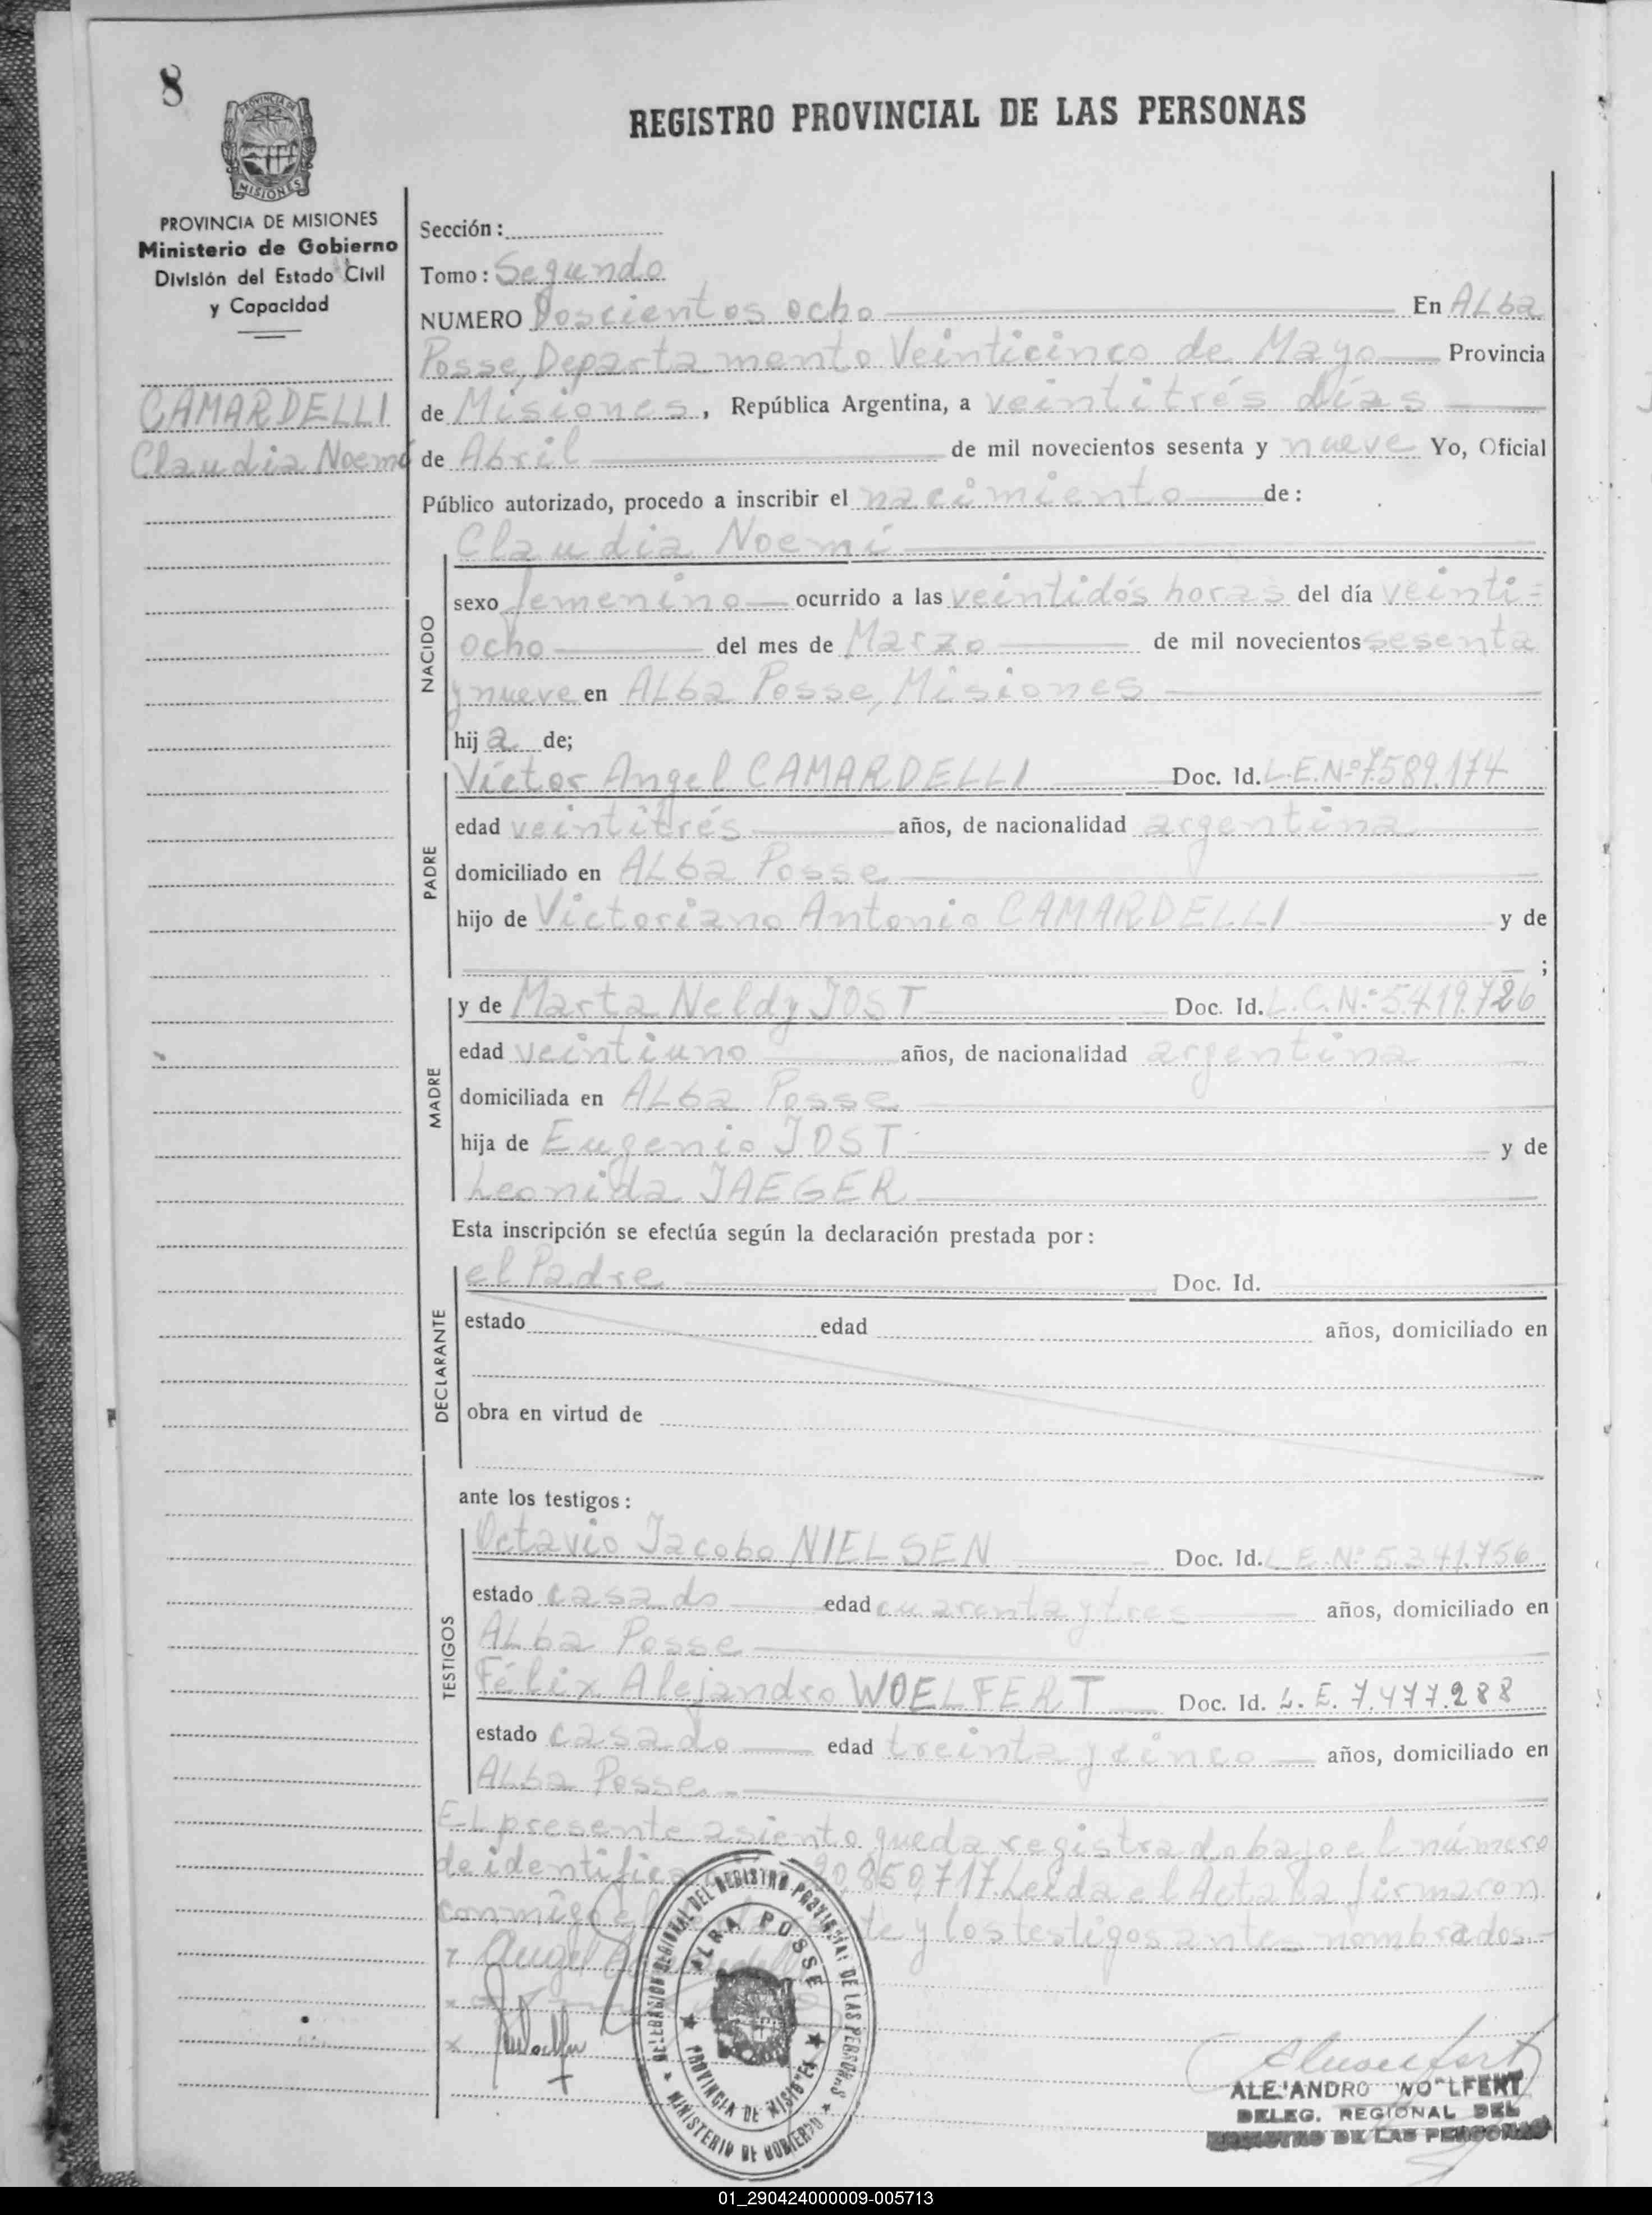 8
PROVINCIA DE
MISIONES
REGISTRO PROVINCIAL DE LAS PERSONAS
PROVINCIA DE MISIONES
Ministerio de Gobierno
División del Estado Civil
y Capacidad
CAMARDELLI
Claudia Noemí
Sección:
Tomo: Segundo
NUMERO Doscientos ocho En Alba
Posse, Departamento Veinticinco de Mayo Provincia
de Misiones, República Argentina, a veintitrés días
de Abril de mil novecientos sesenta y nueve Yo, Oficial
Público autorizado, procedo a inscribir el nacimiento de:
Claudia Noemí
NACIDO
sexo femenino ocurrido a las veintidós horas del día veinti=
ocho del mes de Marzo de mil novecientos sesenta
y nueve en Alba Posse, Misiones
hija de;
PADRE
Víctor Angel CAMARDELLI Doc. Id. L.E.Nº 7.589.174
edad veintitrés años, de nacionalidad argentina
domiciliado en Alba Posse
hijo de Victoriano Antonio CAMARDELLI y de
;
MADRE
y de Marta Neldy JOST Doc. Id. L.C.Nº 5.419.726
edad veintiuno años, de nacionalidad argentina
domiciliada en Alba Posse
hija de Eugenio JOST y de
Leonida JAEGER
Esta inscripción se efectúa según la declaración prestada por:
DECLARANTE
el Padre Doc. Id.
estado edad años, domiciliado en
obra en virtud de
ante los testigos:
TESTIGOS
Octavio Jacobo NIELSEN Doc. Id. L.E.Nº 5.341.756
estado casado edad cuarenta y tres años, domiciliado en
Alba Posse
Félix Alejandro WOELFERT Doc. Id. L.E. 7.477.288
estado casado edad treinta y cinco años, domiciliado en
Alba Posse.-
El presente asiento queda registrado bajo el número
de identifica 0.850.717 Leída el Acta la firmaron
conmigo el te y los testigos antes nombrados.-
Angel
DELEGACION REGIONAL DEL REGISTRO PROVINCIAL DE LAS PERSONAS
ALBA POSSE
PROVINCIA DE MISIONES
MINISTERIO DE GOBIERNO
ALEJANDRO WOELFERT
DELEG. REGIONAL DEL
REGISTRO DE LAS PERSONAS
01_290424000009-005713